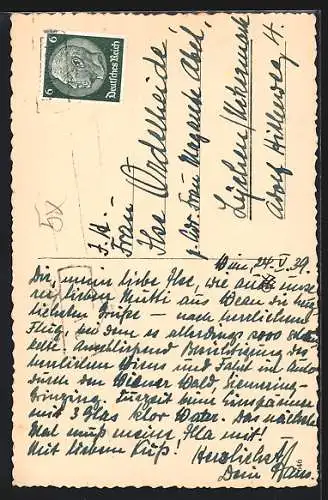 6 Deutsches Reich 6
z. Zt. -
Frau
Ilse Ordenheide
b. Adr. Frau
Lychen/Uckermark
Adolf Hitlerweg 4.
Wien, 24. V. 39.
Dir, meine liebe Ilse, wie auch unserer
lieben Mutti aus Wean die herz-
lichsten Grüße - nach herrlichem
Flug, bei dem es allerdings
kalt. Anschließend Besichtigung des
herrlichen Wiens und Fahrt im Auto
durch den Wiener Wald, Sievering-
Grinzing. Zurzeit beim Einspänner
mit 3 Glas klor Water. Das nächste
Mal muß meine Illa mit!
Mit liebem Kuß! Herzlichst
Dein Hans.